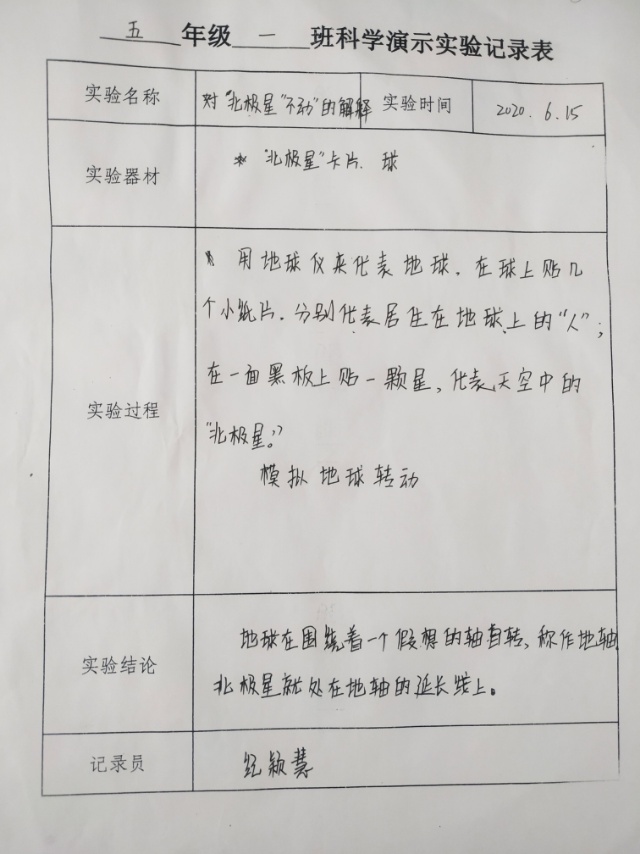 五年级一班科学演示实验记录表
实验名称 对“北极星“不动”的解释 实验时间 2020.6.15
实验器材 “北极星”卡片. 球
用地球仪来代表地球. 在球上贴几
个小纸片. 分别代表居住在地球上的“人”;
在一面黑板上贴一颗星, 代表天空中的
实验过程
“北极星。”
模拟地球转动
地球在围绕着一个假想的轴自转、称作地轴
实验结论
北极星就处在地轴的延长线上。
记录员 颖慧